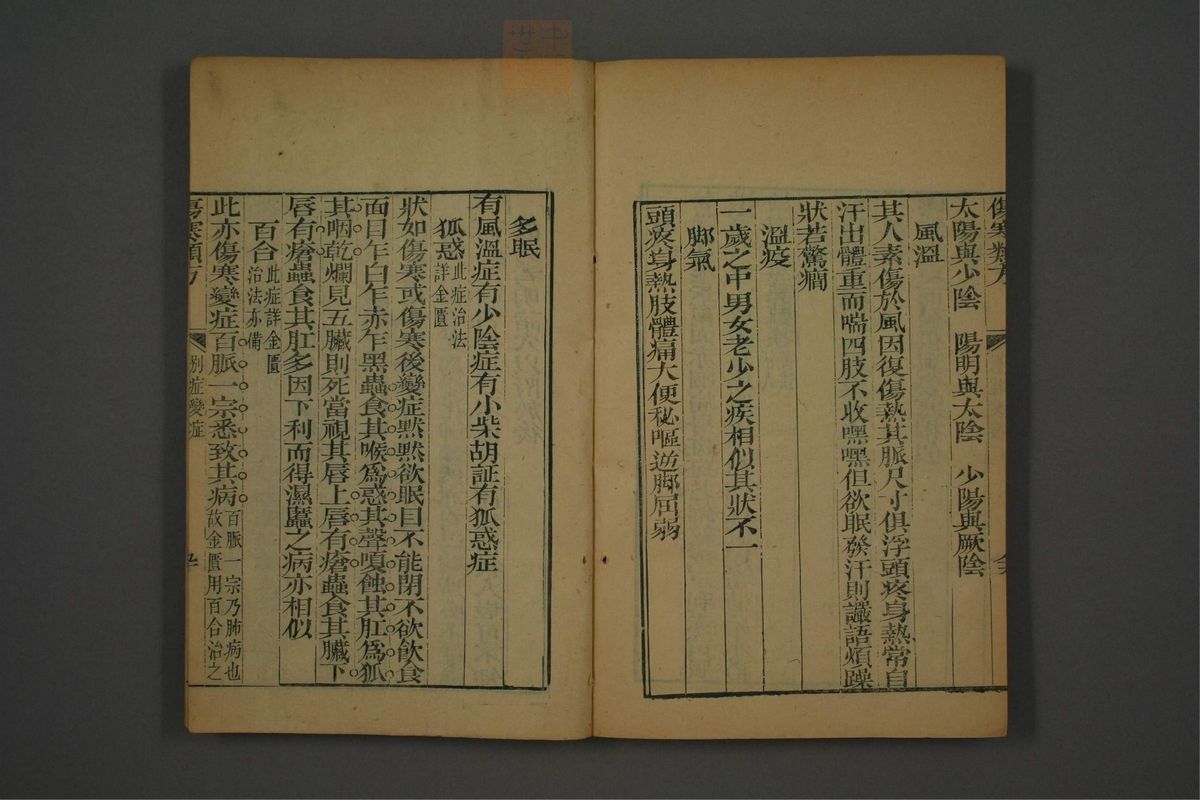 傷寒類方
太陽與少陰　陽明與太陰　少陽與厥陰
風溫
其人素傷於風因復傷熱其脈尺寸俱浮頭疼身熱常自
汗出體重而喘四肢不收嘿嘿但欲眠發汗則讝語煩躁
狀若驚癎
溫疫
一歲之中男女老少之疾相似其狀不一
脚氣
頭疼身熱肢體痛大便秘嘔逆脚屈弱
多眠
有風溫症有少陰症有小柴胡証有狐惑症
狐惑此症治法詳金匱
狀如傷寒或傷寒後變症黙黙欲眠目不能閉不欲飲食
面目乍白乍赤乍黑蟲食其喉爲惑其聲嗄蝕其肛爲狐
其咽乾爛見五臟則死當視其唇上唇有瘡蟲食其臟下
唇有瘡蟲食其肛多因下利而得濕䘌之病亦相似
百合此症詳金匱治法亦備
此亦傷寒變症百脈一宗悉致其病百脈一宗乃肺病也故金匱用百合治之
傷寒類方
別症變症